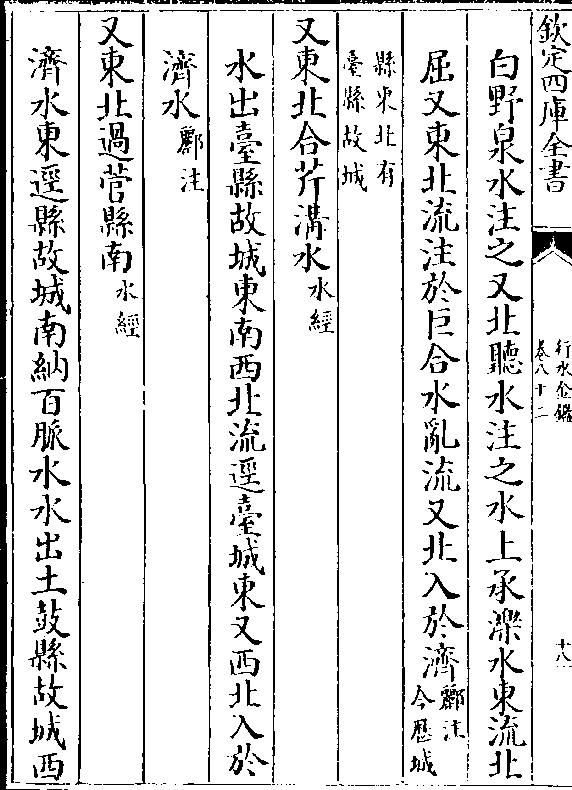 欽定四庫全書
行水金鑑
卷八十二
十八
白野泉水注之又北聽水注之水上承濼水東流北
屈又東北流注於巨合水亂流又北入於濟酈注
今歷城
縣東北有
臺縣故城
又東北合芹溝水水經
水出臺縣故城東南西北流逕臺城東又西北入於
濟水酈注
又東北過菅縣南水經
濟水東逕縣故城南納百脈水水出土鼓縣故城西